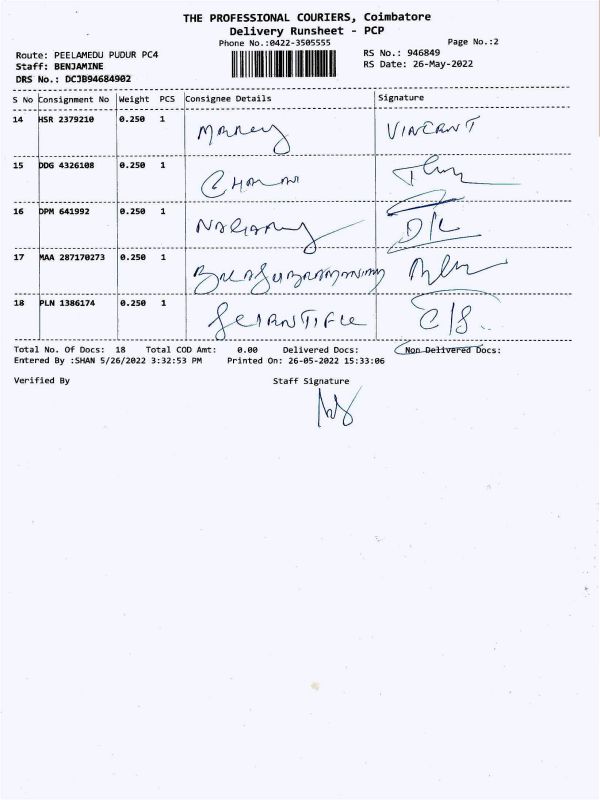 THE PROFESSIONAL COURIERS, Coimbatore
Delivery Runsheet - PCP
Phone No.:0422-3505555 Page No.:2
Route: PEELAMEDU PUDUR PC4 RS No.: 946849
Staff: BENJAMINE RS Date: 26-May-2022
DRS No.: DCJB94684902
S No Consignment No Weight PCS Consignee Details Signature
14 HSR 2379210 0.250 1 VINCENT
15 DDG 4326108 0.250 1
16 DPM 641992 0.250 1 D/L
17 MAA 287170273 0.250 1 BALASUBRAMANIAM
18 PLN 1386174 0.250 1 SCIANTIFIC C/S.
Total No. Of Docs: 18 Total COD Amt: 0.00 Delivered Docs: Non Delivered Docs:
Entered By :SHAN 5/26/2022 3:32:53 PM Printed On: 26-05-2022 15:33:06
Verified By Staff Signature